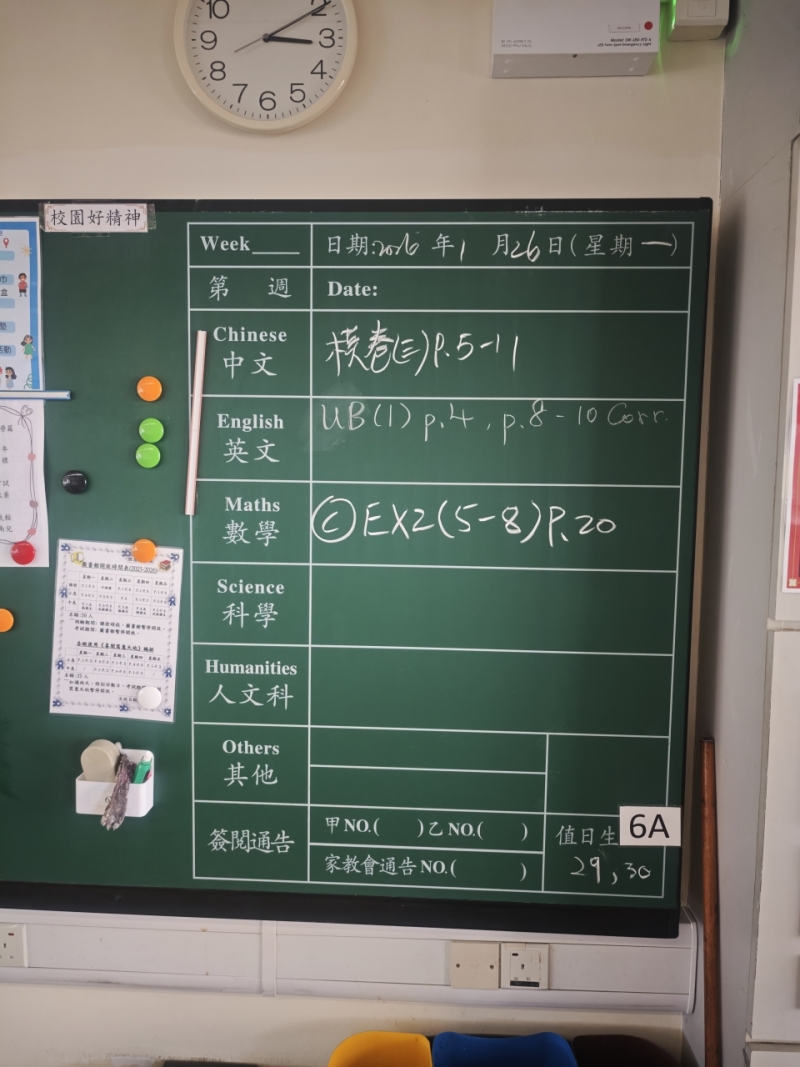 10
2
9
3
8
4
7
6
5
校園好精神
Week____ 日期:2026年1月26日(星期一)
第 週 Date:
Chinese
中文
模卷(三)P.5-11
English
英文
UB(1) p.4, p.8-10 Corr.
Maths
數學
Ⓒ EX2(5-8)P.20
Science
科學
Humanities
人文科
Others
其他
簽閱通告
甲NO.( )乙NO.( )
家教會通告NO.( )
值日生
29,30
6A
圖書館開放時間表(2025-2026)